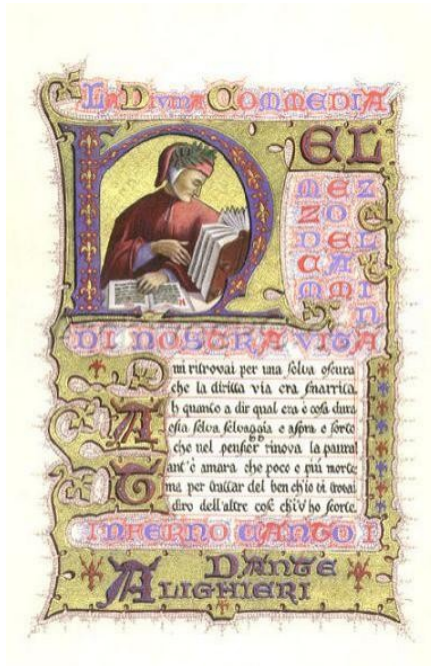 La Divina Commedia
NEL
MEZ
ZO
DEL
CAM
MIN
DI NOSTRA VITA
mi ritrovai per una selva oscura
che la diritta via era smarrita
Ah quanto a dir qual era e cosa dura
esta selva selvaggia e aspra e forte
che nel pensier rinova la paura!
Tant'è amara che poco e piú morte;
ma per trattar del ben ch'io vi trovai
diro dell'altre cose chi v'ho scorte.
INFERNO CANTO I
DANTE
ALIGHIERI